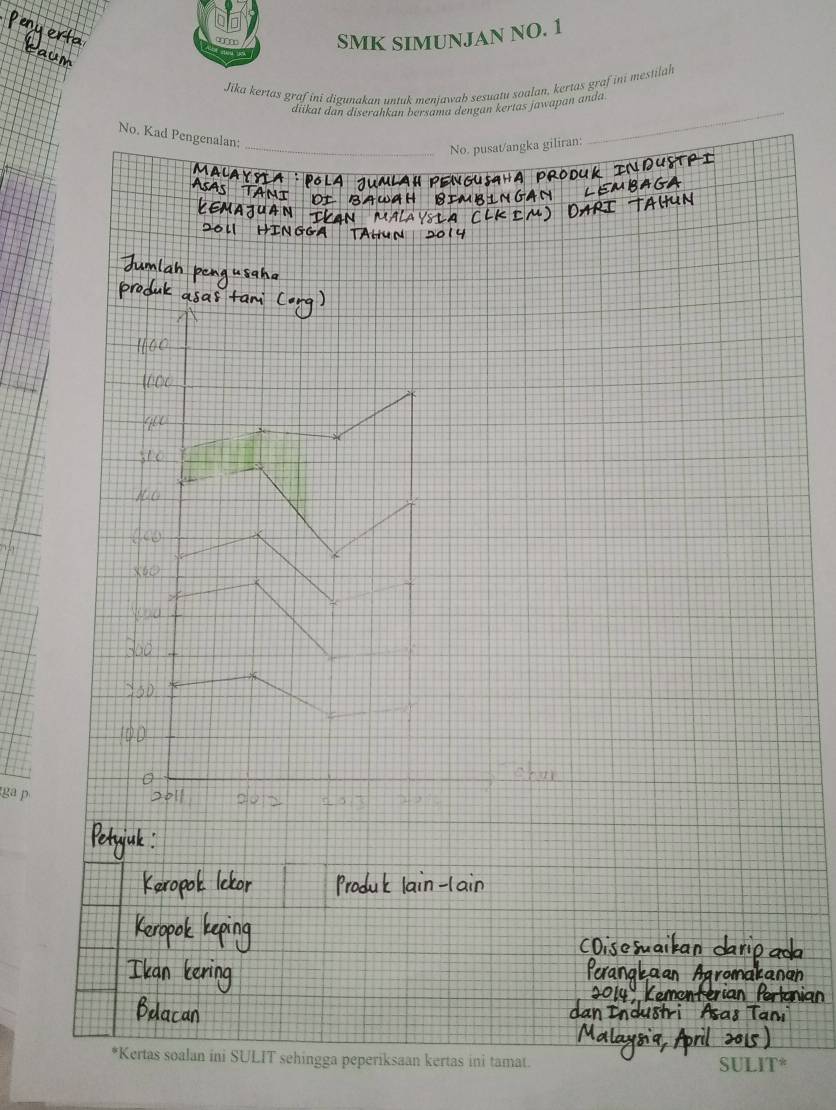 Penyerta
Kaum
SMK SIMUNJAN NO. 1
Jika kertas graf ini digunakan untuk menjawab sesuatu soalan, kertas graf ini mestilah
diikat dan diserahkan bersama dengan kertas jawapan anda.
No. Kad Pengenalan:
No. pusat/angka giliran:
MALAYSIA : POLA JUMLAH PENGUSAHA PRODUK INDUSTRI
ASAS TANI DI BAWAH BIMBINGAN LEMBAGA
KEMAJUAN IKAN MALAYSIA (LKIM) DARI TAHUN
2011 HINGGA TAHUN 2014
Jumlah pengusaha
produk asas tani (org)
1100
1000
900
300
100
0
2011 2012
Petunjuk:
Keropok lekor Produk lain-lain
Keropok keping
Ikan kering
Belacan
(Disesuaikan daripada
Perangkaan Agromakanan
2014, Kementerian Pertanian
dan Industri Asas Tani
Malaysia, April 2015)
*Kertas soalan ini SULIT sehingga peperiksaan kertas ini tamat.
SULIT*
ga p